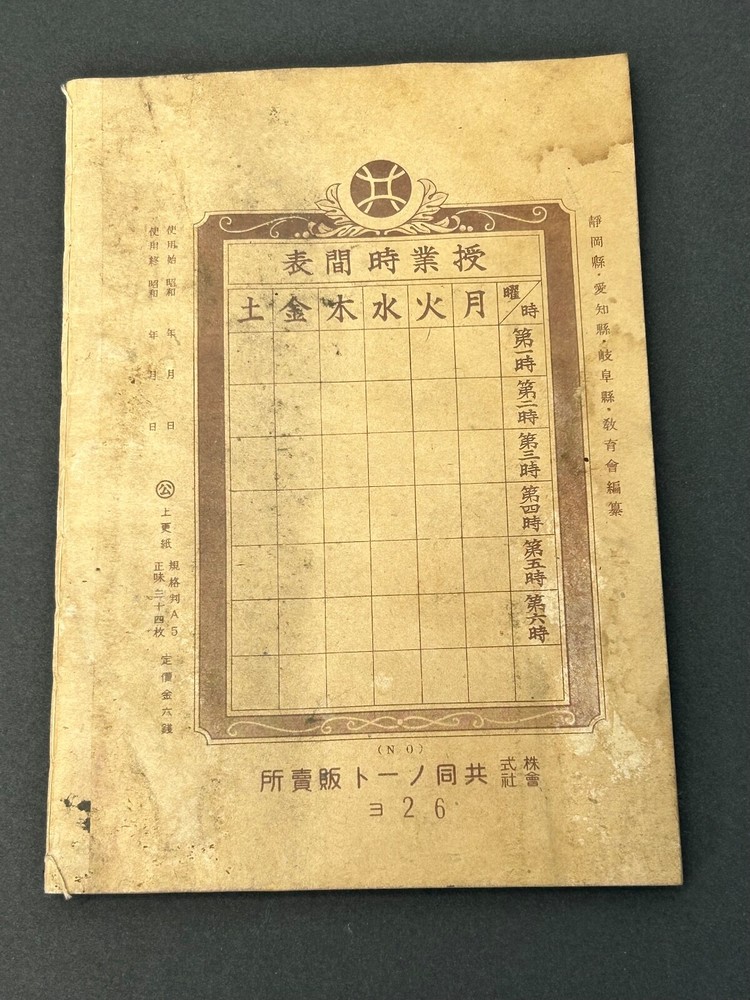 靜岡縣・愛知縣・岐阜縣・教育會編纂
授業時間表
曜 時
月 火 水 木 金 土
第一時
第二時
第三時
第四時
第五時
第六時
使用始 昭和 年 月 日
使用終 昭和 年 月 日
公 上更紙 規格判A5
正味二十四枚
定價金六錢
(NO)
株式會社 共同ノート販賣所
ヨ26